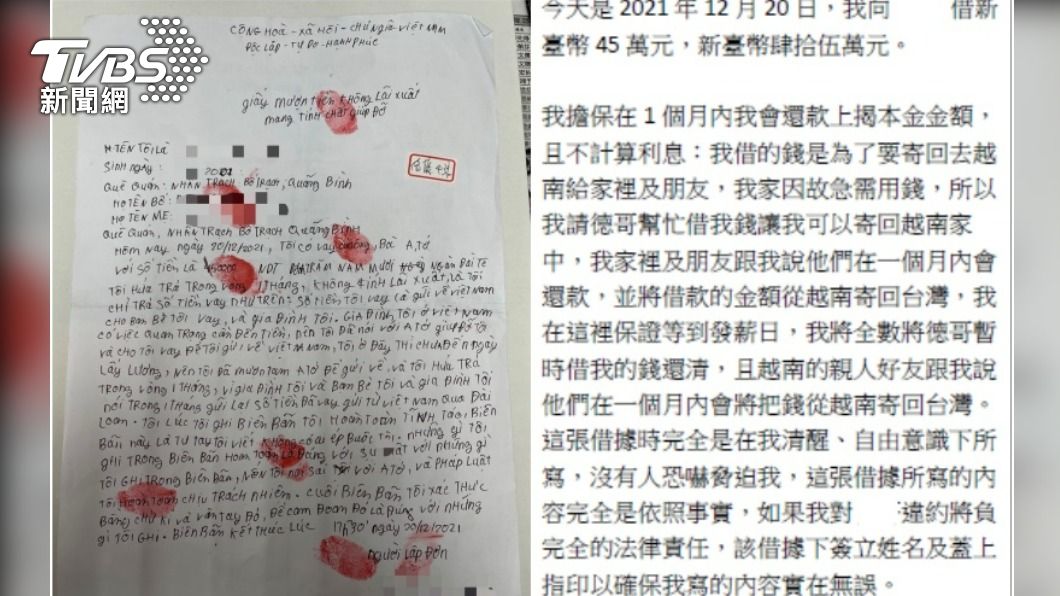 TVBS
新聞網
CỘNG HOÀ - XÃ HỘI - CHỦ NGHĨA VIỆT NAM
ĐỘC LẬP - TỰ DO - HẠNH PHÚC
giấy mượn tiền không lãi xuất
mang tính chất giúp đỡ
HỌ TÊN TÔI LÀ
Sinh ngày: 2001
Quê Quán: NHÂN TRẠCH BỐ TRẠCH, Quảng Bình
HỌ TÊN BỐ:
HỌ TÊN MẸ:
Quê Quán, NHÂN TRẠCH BỐ TRẠCH QUẢNG BÌNH
Hôm nay ngày 20/12/2021, Tôi có vay
với số tiền là NDT TRĂM NĂM MƯƠI NGÀN ĐÀI TỆ
Tôi Hứa Trả Trong vòng 1 Tháng, không tính Lãi xuất, là Tôi
CHỈ TRẢ SỐ TIỀN VAY NHƯ TRÊN: Số TIỀN TÔI VAY gửi về việt Nam
CHO BẠN BÈ TÔI VAY, và GIA ĐÌNH TÔI. GIA ĐÌNH TÔI ở việt Nam
có việc Quan Trọng cần ĐẾN TIỀN, nên Tôi Đã nói với A Tớ giúp Đỡ Tôi
và cho Tôi vay ĐỂ TÔI gửi về việt Nam, Tôi ở Đây THÌ CHƯA ĐẾN ngày
Lấy Lương, nên Tôi Đã mượn Tạm A Tớ Để gửi về, và Tôi Hứa Trả
Trong vòng 1 Tháng, vì gia Đình Tôi và Bạn Bè Tôi và gia Đình Tôi
nói Trong 1 Tháng gửi Lại Số Tiền Đã vay gửi từ việt Nam Qua Đài
Loan. Tôi Lúc Tôi ghi Biên Bản Tôi Hoàn Toàn TỈNH TÁO, Biên
Bản này Là Tự Tay Tôi viết không có ai ép Buộc Tôi. những gì Tôi
ghi Trong Biên Bản Hoàn Toàn Là Đúng với Sự với những gì
Tôi GHI Trong Biên Bản, Nếu Tôi nói Sai với A Tớ, và Pháp Luật
Tôi Hoàn Toàn CHỊU TRÁCH NHIỆM. Cuối Biên Bản Tôi Xác Thực
Bằng chữ kí và vân Tay Đỏ, Để cam Đoan Đó Là Đúng với những
gì Tôi GHI. Biên Bản KẾT THÚC LÚC 17h30' ngày 20/12/2021
người Lập Đơn
今天是 2021 年 12 月 20 日，我向 借新
臺幣 45 萬元，新臺幣肆拾伍萬元。
我擔保在 1 個月內我會還款上揭本金金額，
且不計算利息：我借的錢是為了要寄回去越
南給家裡及朋友，我家因故急需用錢，所以
我請德哥幫忙借我錢讓我可以寄回越南家
中，我家裡及朋友跟我說他們在一個月內會
還款，並將借款的金額從越南寄回台灣，我
在這裡保證等到發薪日，我將全數將德哥暫
時借我的錢還清，且越南的親人好友跟我說
他們在一個月內會將把錢從越南寄回台灣。
這張借據時完全是在我清醒、自由意識下所
寫，沒有人恐嚇脅迫我，這張借據所寫的內
容完全是依照事實，如果我對 違約將負
完全的法律責任，該借據下簽立姓名及蓋上
指印以確保我寫的內容實在無誤。